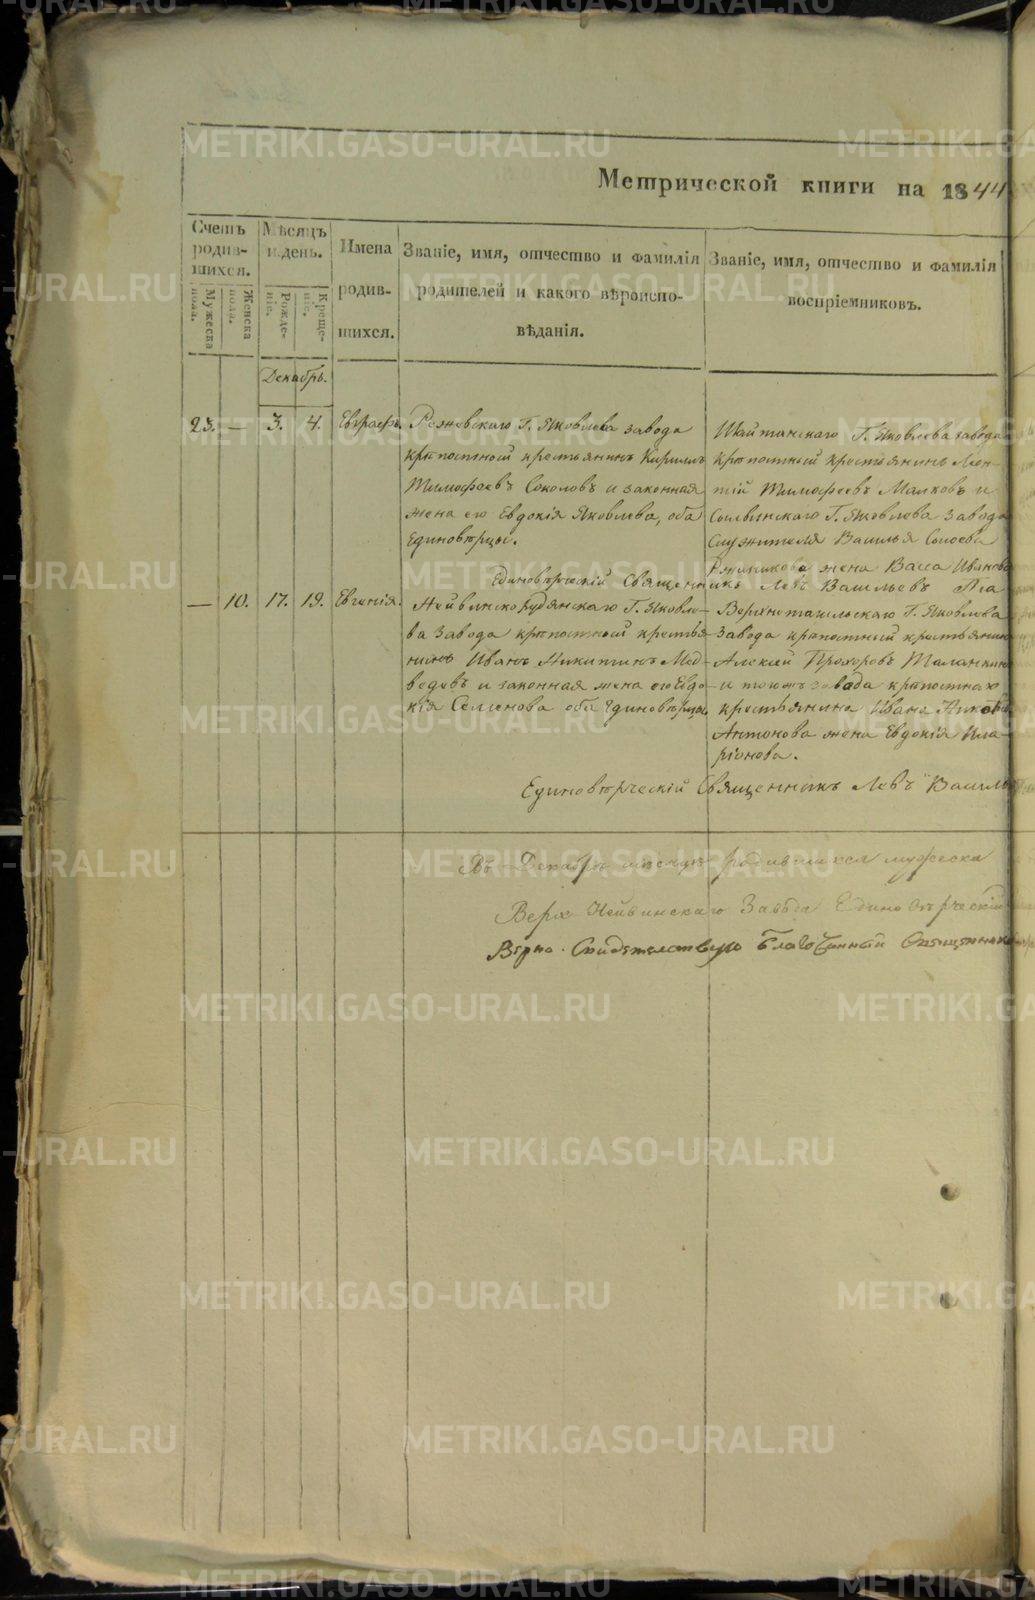 Метрической книги на 1844
Счетъ родив-шихся.
Мужеска пола.
Женска пола.
Мѣсяцъ и день.
Рожде-ніе.
Креще-ніе.
Имена родив-шихся.
Званіе, имя, отчество и фамилія
родителей и какого вѣроиспо-
вѣданія.
Званіе, имя, отчество и фамилія
воспріемниковъ.
Декабрь.
23. — 3. 4. Евграфъ.
Режевскаго Г. Яковлева завода
крѣпостный крестьянинъ Кириллъ
Тимофеевъ Соколовъ и законная
жена его Евдокія Яковлева, оба
Единовѣрцы.
Шайтанскаго Г. Яковлева завода
крѣпостный крестьянинъ Леон-
тій Тимофеевъ Малковъ и
Сылвинскаго Г. Яковлева завода
Служителя Василья
жена Васса Иванова
Единовѣрческій Священникъ Левъ Васильевъ
— 10. 17. 19. Евгенія.
Нейвинскорудянскаго Г. Яковле-
ва завода крѣпостный крестья-
нинъ Иванъ Никитинъ Мед-
ведевъ и законная жена его Евдо-
кія Семенова оба Единовѣрцы.
Верхнетагильскаго Г. Яковлева
завода крѣпостный крестьянинъ
Алексей Прохоровъ Таланкинъ
и тогожъ завода крѣпостнаго
крестьянина Ивана
Антонова жена Евдокія Ила-
ріонова.
Единовѣрческій Священникъ Левъ Василь
Въ Декабрѣ месяцѣ родившихся мужеска
Верх Нейвинскаго Завода Единовѣрческій
Вѣрно. Свидѣтельствую Благочинный Священникъ
METRIKI.GASO-URAL.RU